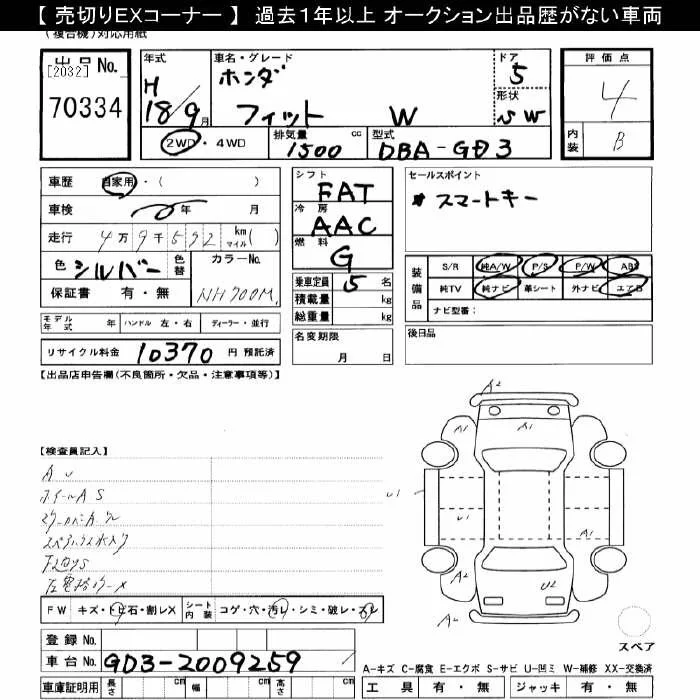 【 売切りEXコーナー 】 過去1年以上 オークション出品歴がない車両
(複合機)対応用紙
出品No.
[2032]
70334
年式
H
18/9月
車名・グレード
ホンダ
フィット W
ドア
5
形状
SW
評価点
4
内装
B
2WD・4WD
排気量 1500 cc
型式 DBA-GD3
車歴 自家用・( )
車検 年 月
走行 4万9千592 km マイル( )
色 シルバー 色替
カラーNo. NH700M
保証書 有・無
モデル年式 年 ハンドル 左・右 ディーラー・並行
リサイクル料金 10370 円 預託済
シフト
FAT
冷房
AAC
燃料
G
乗車定員 5 名
積載量 kg
総重量 kg
名変期限
月 日
セールスポイント
* スマートキー
装備品
S/R 純A/W P/S P/W ABS
純TV 純ナビ 革シート 外ナビ エアB
ナビ型番:
後日品
【出品店申告欄(不良箇所・欠品・注意事項等)】
【検査員記入】
AU
ホイールAS
FW キズ・トビ石・割レX
シート内装 コゲ・穴・汚レ・シミ・破レ・スレ
登録No.
車台No. GD3-2009259
車庫証明用 長さ cm 幅 cm 高さ cm
A2
A1
A1
A1
U1
U1
A1
A2
U2
A2
スペア
A-キズ C-腐食 E-エクボ S-サビ U-凹ミ W-補修 XX-交換済
工具 有・無 ジャッキ 有・無